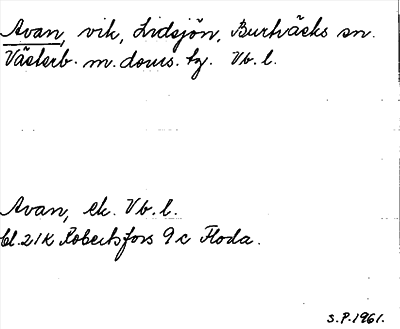 Avan, vik, Lidsjön, Burträsks sn.
Västerb. m. doms. tg. Vb. l.
Avan, ek. Vb. l.
bl. 21K Robertsfors 9c Floda.
S.P. 1961.